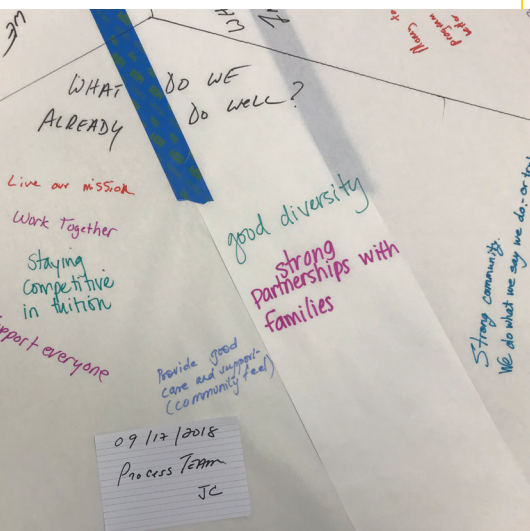 WE
WHAT DO WE
ALREADY DO WELL?
Live our mission
Work Together
Staying
competitive
in tuition
pport everyone
good diversity
strong
partnerships with
families
Provide good
care and support-
(community feel)
Strong community.
We do what we say we do,- or try
Many to
program
09/17/2018
Process Team
JC